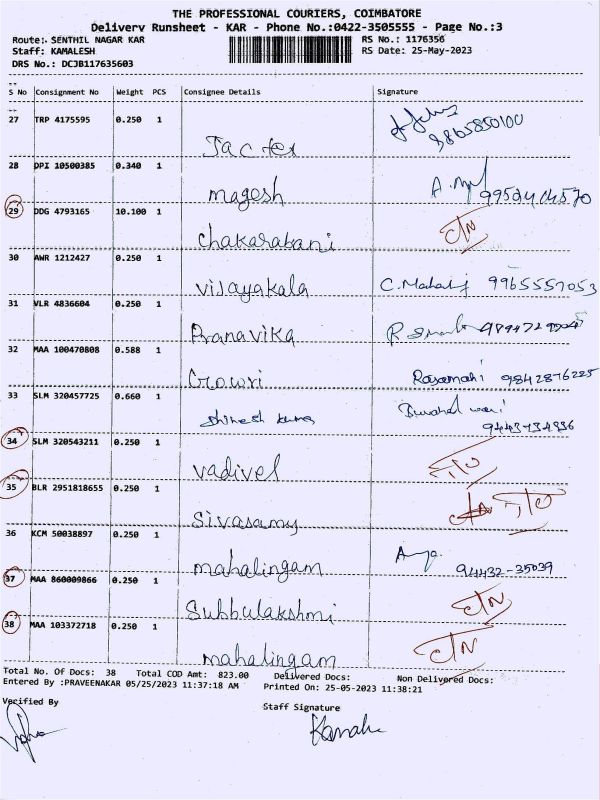 THE PROFESSIONAL COURIERS, COIMBATORE
Delivery Runsheet - KAR - Phone No.:0422-3505555 - Page No.:3
Route: SENTHIL NAGAR KAR RS No.: 1176356
Staff: KAMALESH RS Date: 25-May-2023
DRS No.: DCJB117635603
S No Consignment No Weight PCS Consignee Details Signature
27 TRP 4175595 0.250 1
9865850100
Jac tex
28 DPI 10500385 0.340 1
magesh
29 DDG 4793165 10.100 1
chakarabani
30 AWR 1212427 0.250 1
vijayakala C. 9965557053
31 VLR 4836604 0.250 1
Pranavika
32 MAA 100470808 0.588 1
Gowri 9842876225
33 SLM 320457725 0.660 1
Dhinesh kumar
34 SLM 320543211 0.250 1
vadivel
35 BLR 2951818655 0.250 1
Sivasamy
36 KCM 50038897 0.250 1
mahalingam 94432-35039
37 MAA 860009866 0.250 1
Subbulakshmi
38 MAA 103372718 0.250 1
mahalingam
Total No. Of Docs: 38 Total COD Amt: 823.00 Delivered Docs: Non Delivered Docs:
Entered By :PRAVEENAKAR 05/25/2023 11:37:18 AM Printed On: 25-05-2023 11:38:21
Verified By Staff Signature